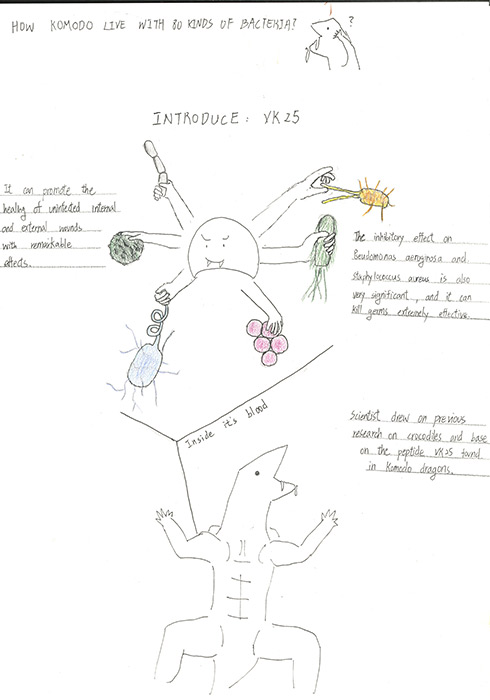 HOW KOMODO LIVE WITH 80 KINDS OF BACTERIA?
?
INTRODUCE: VK25
It can promote the
healing of uninfected internal
and external wounds
with remarkable
effects.
The inhibitory effect on
Pseudomonas aeruginosa and
staphylococcus aureus is also
very significant, and it can
kill germs extremely effective.
Inside it's blood
Scientist drew on previous
research on crocodiles and base
on the peptide VK25 found
in Komodo dragons.